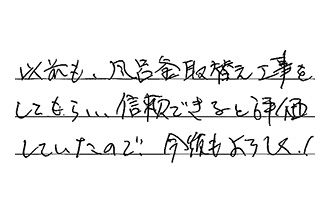 以前も、風呂釜取替え工事を
してもらい、信頼できると評価
していたので、今後もよろしく!